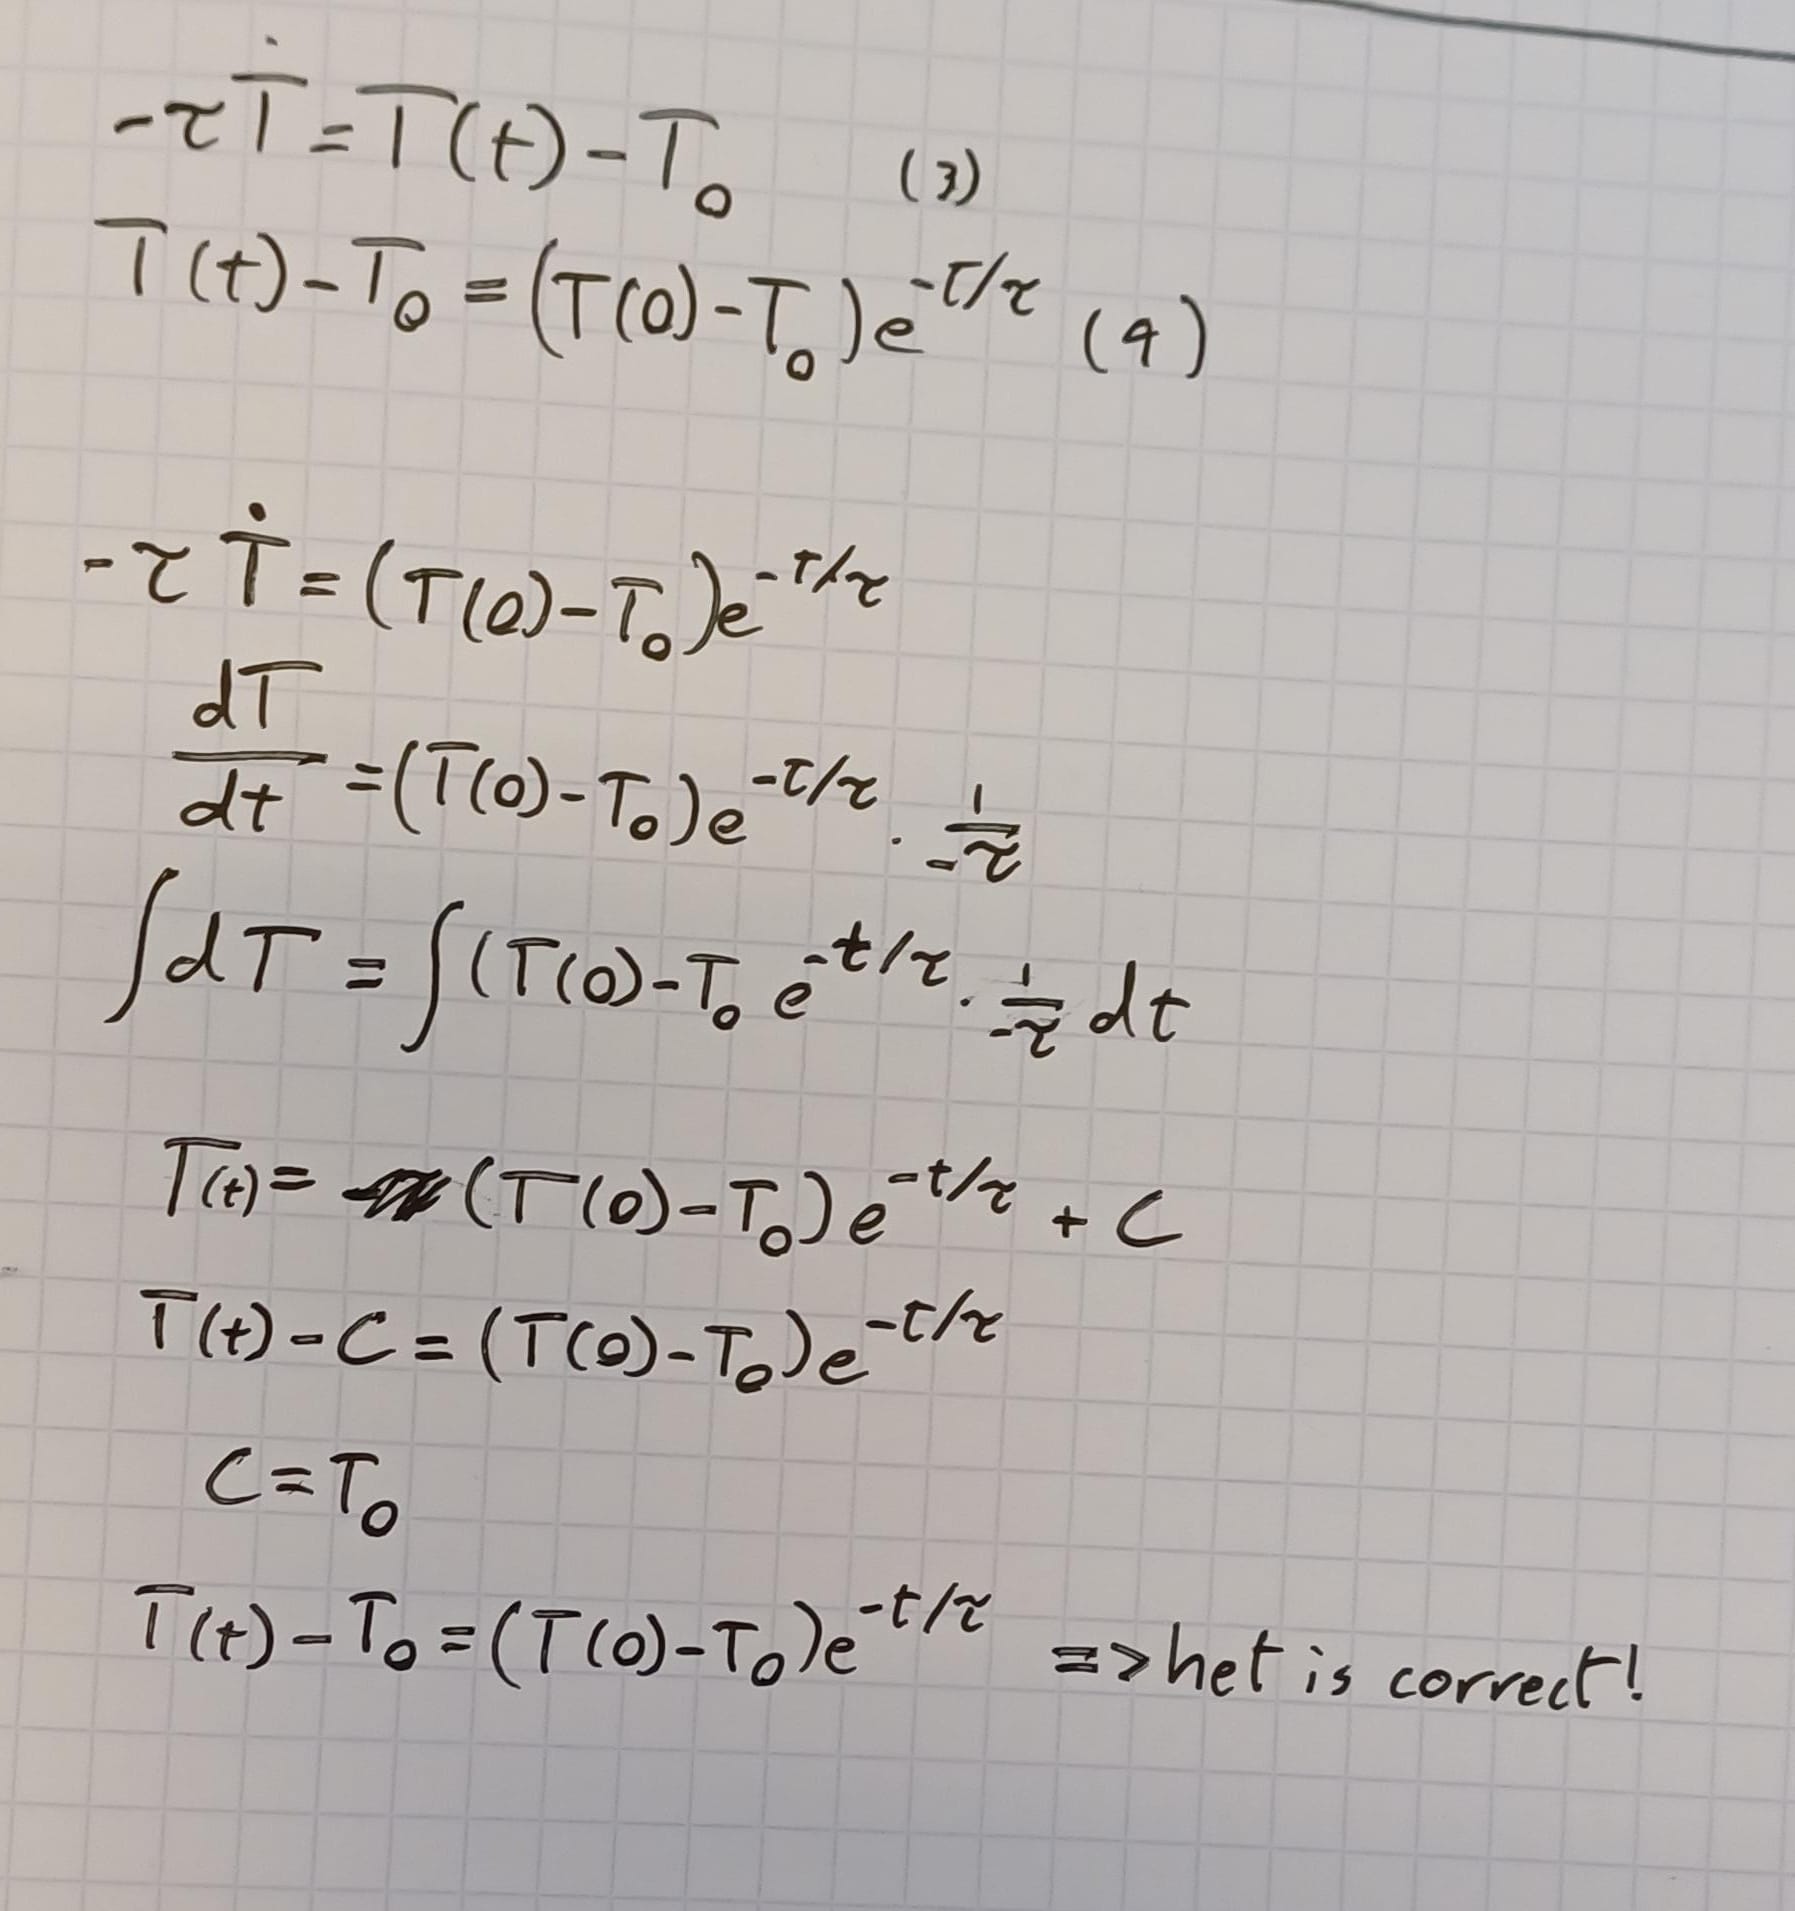 -τṪ = T(t) - T₀ (3)
T(t) - T₀ = (T(0) - T₀)e^{-t/τ} (4)
-τṪ = (T(0) - T₀)e^{-t/τ}
dT/dt = (T(0) - T₀)e^{-t/τ} · 1/-τ
∫dT = ∫(T(0) - T₀ e^{-t/τ} · 1/-τ dt
T(t) = (T(0) - T₀)e^{-t/τ} + C
T(t) - C = (T(0) - T₀)e^{-t/τ}
C = T₀
T(t) - T₀ = (T(0) - T₀)e^{-t/τ} => het is correct!